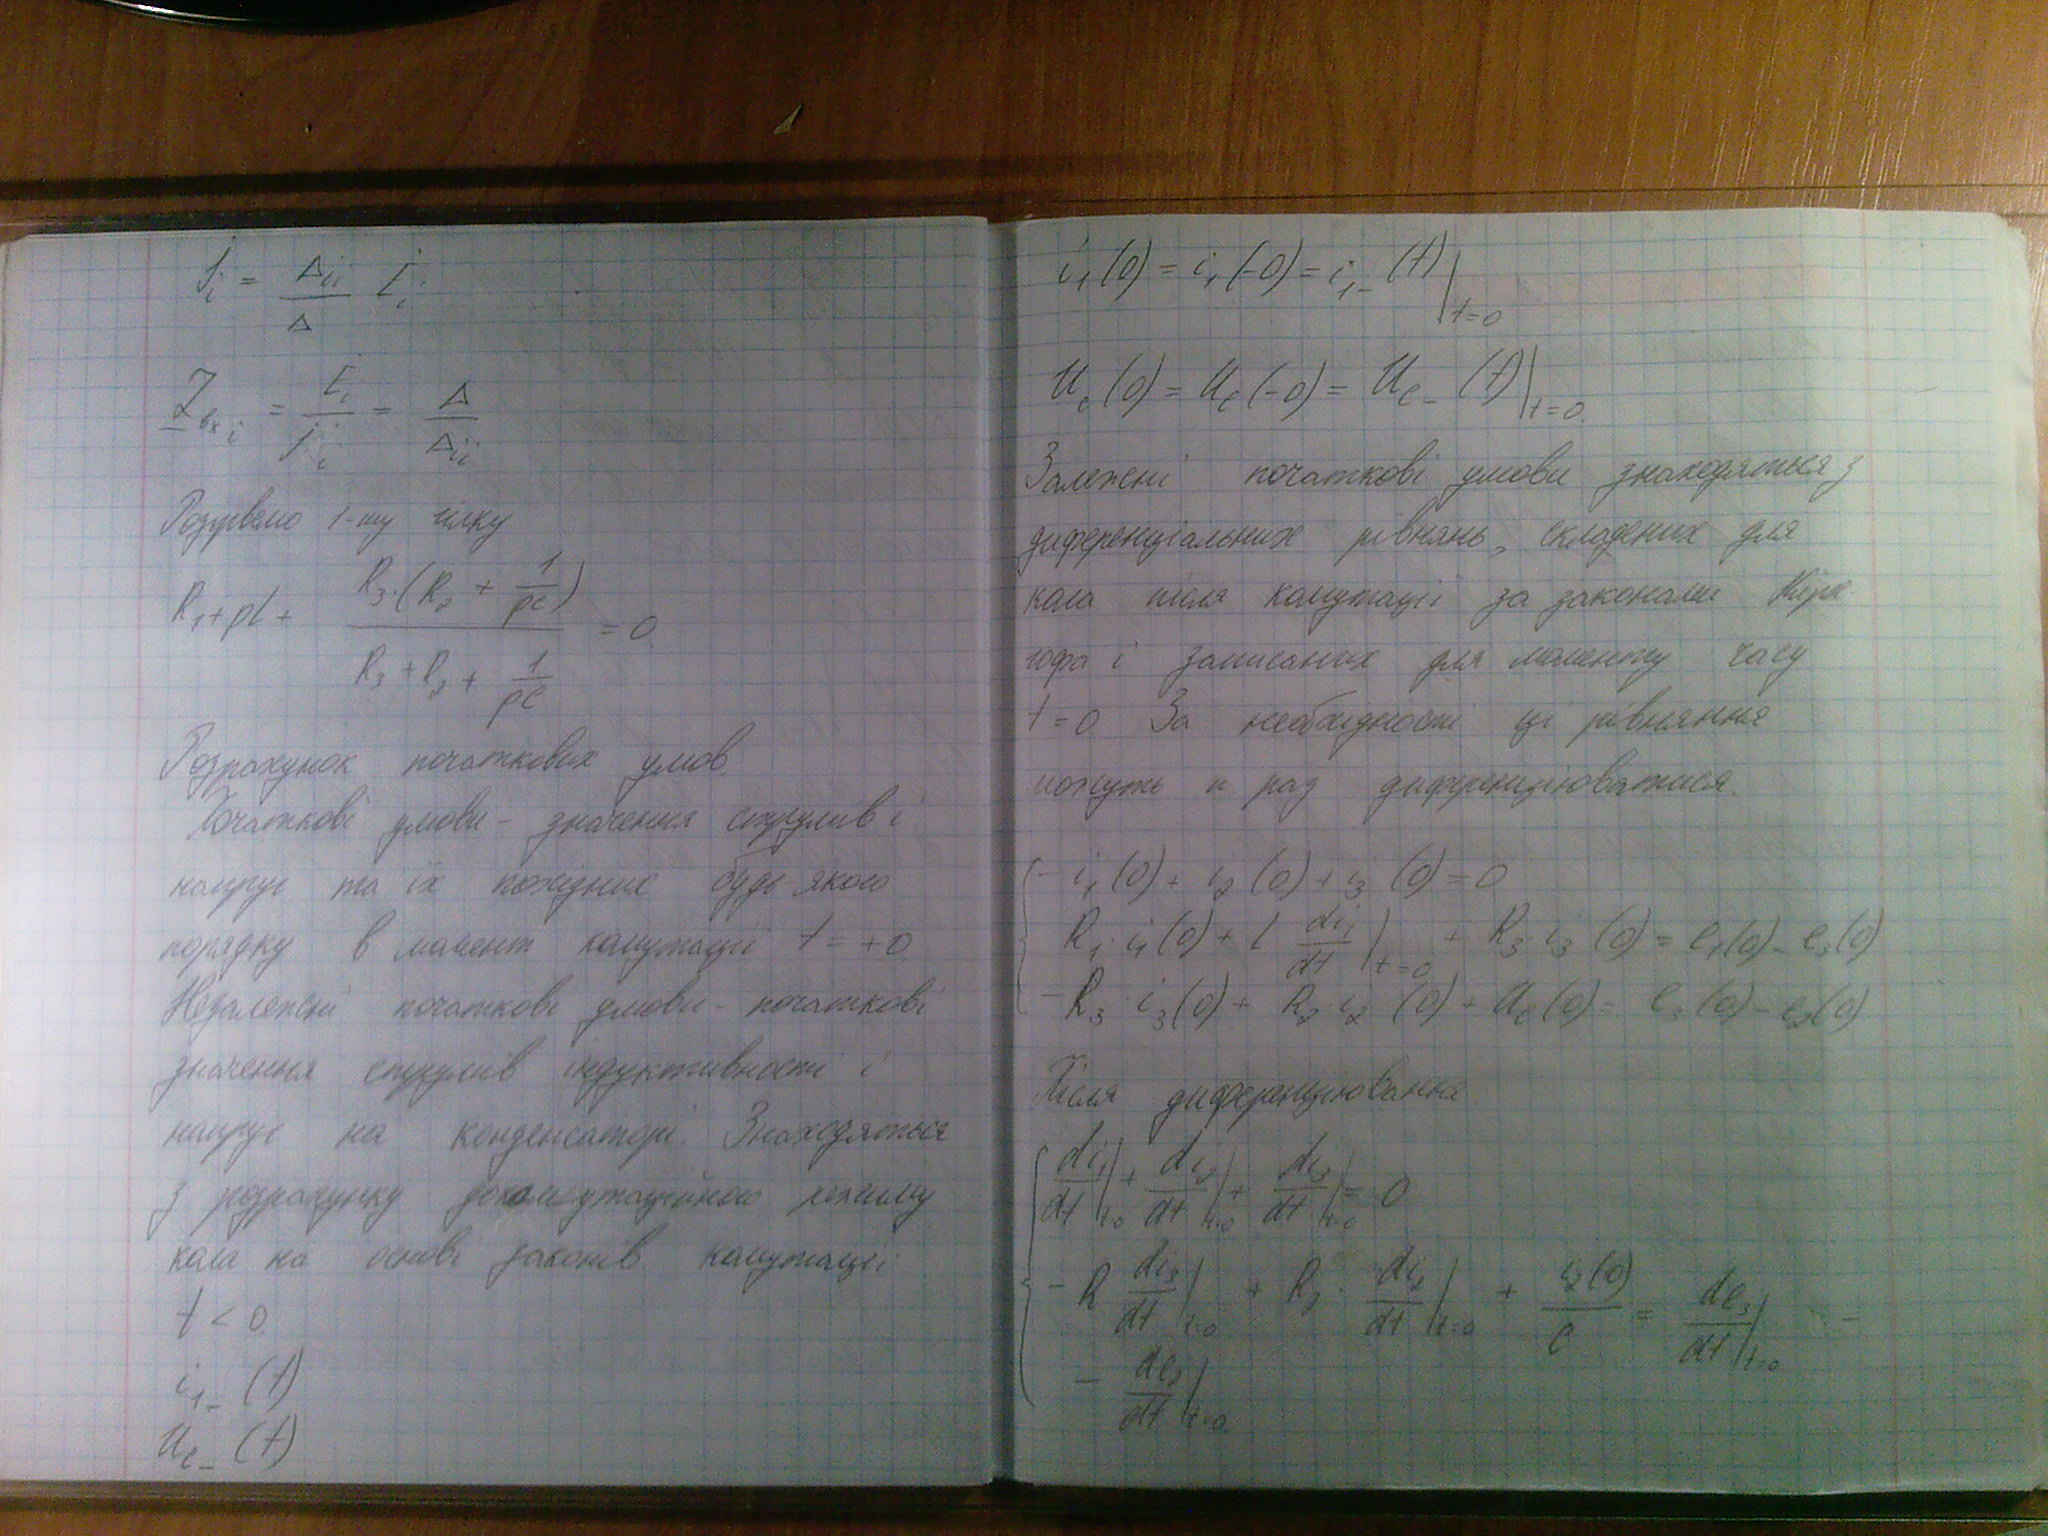 İ_i = Δ_ii / Δ · Ė_i
Z_вх i = Ė_i / İ_i = Δ / Δ_ii
Розірвемо 1-шу гілку
R₁ + pL + R₃·(R₂ + 1/pC) / (R₃ + R₂ + 1/pC) = 0
Розрахунок початкових умов.
Початкові умови - значення струмів і
напруг та їх похідних будь-якого
порядку в момент комутації t = +0
Незалежні початкові умови - початкові
значення струмів індуктивності і
напруг на конденсаторі. Знаходяться
з розрахунку докомутаційного режиму
кола на основі законів комутації
t < 0
i₁₋(t)
U_c₋(t)
i₁(0) = i₁(-0) = i₁₋(t)|t=0
U_c(0) = U_c(-0) = U_c₋(t)|t=0
Залежні початкові умови знаходяться з
диференціальних рівнянь, складених для
кола після комутації за законами Кірх-
гофа і записаних для моменту часу
t = 0 За необхідності ці рівняння
можуть n раз диференціюватися.
- i₁(0) + i₂(0) + i₃(0) = 0
R₁·i₁(0) + L di₁/dt|t=0 + R₃·i₃(0) = e₁(0) - e₃(0)
- R₃·i₃(0) + R₂·i₂(0) + U_c(0) = e₃(0) - e₂(0)
Після диференціювання
di₁/dt|t=0 + di₂/dt|t=0 + di₃/dt|t=0 = 0
- R di₃/dt|t=0 + R₂·di₂/dt|t=0 + i₂(0)/C = de₃/dt|t=0 -
- de₂/dt|t=0